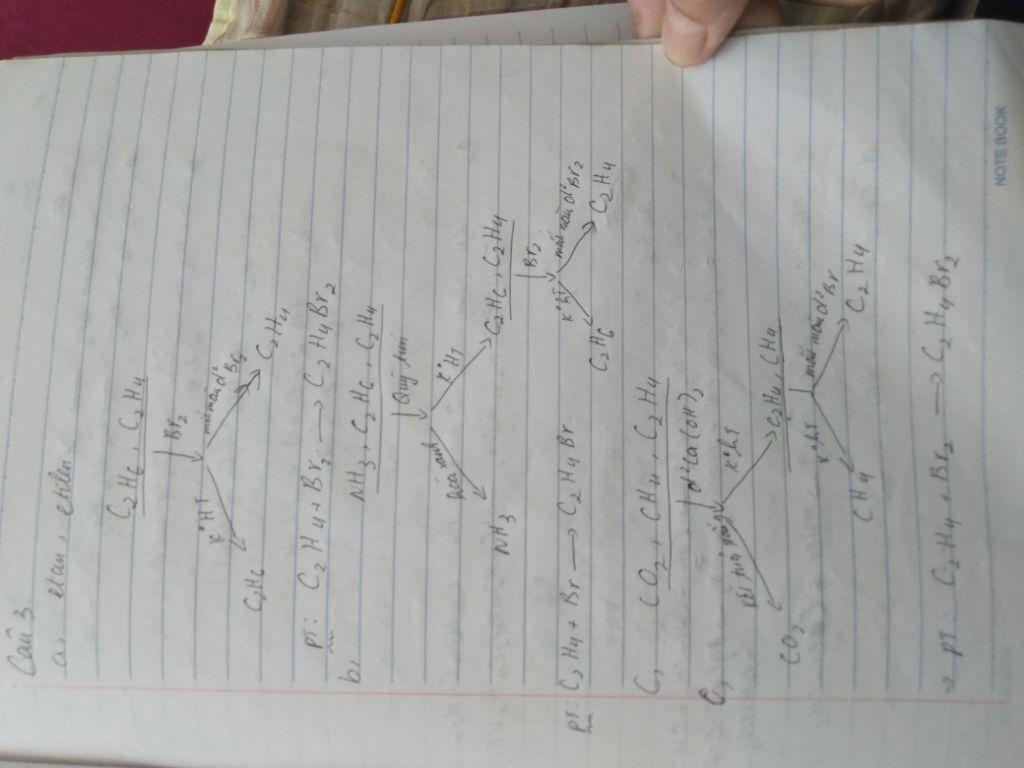 Câu 3
a, etan, etilen
C2H6, C2H4
Br2
K° HT mất màu d² Br2
C2H6 C2H4
PT: C2H4 + Br2 → C2H4Br2
b, NH3, C2H6, C2H4
Quỳ tím
Hóa xanh K° HT
NH3 C2H6, C2H4
Br2
K° HT mất màu d² Br2
C2H6 C2H4
PT: C2H4 + Br → C2H4Br
C, CO2, CH4, C2H4
d² Ca(OH)2
K° HT
CO2 C2H4, CH4
K° HT mất màu d² Br
CH4 C2H4
PT: C2H4 + Br2 → C2H4Br2
NOTE BOOK